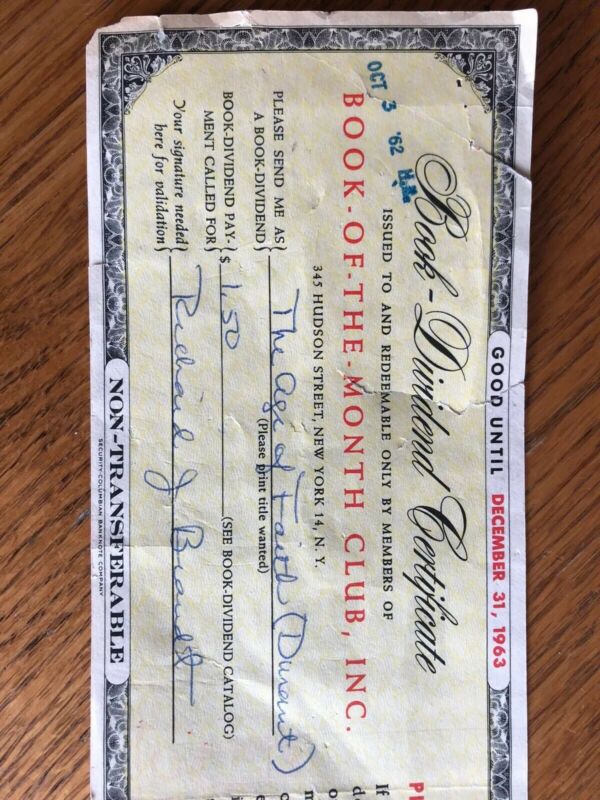 GOOD UNTIL DECEMBER 31, 1963
Book-Dividend Certificate
OCT 3 '62
ISSUED TO AND REDEEMABLE ONLY BY MEMBERS OF
BOOK-OF-THE-MONTH CLUB, INC.
345 HUDSON STREET, NEW YORK 14, N. Y.
PLEASE SEND ME AS
A BOOK-DIVIDEND
The Age of Faith (Durant)
(Please print title wanted)
BOOK-DIVIDEND PAY-
MENT CALLED FOR
$ 1.50
(SEE BOOK-DIVIDEND CATALOG)
Your signature needed
here for validation
Richard J Brandt
NON-TRANSFERABLE
SECURITY-COLUMBIAN BANKNOTE COMPANY
If